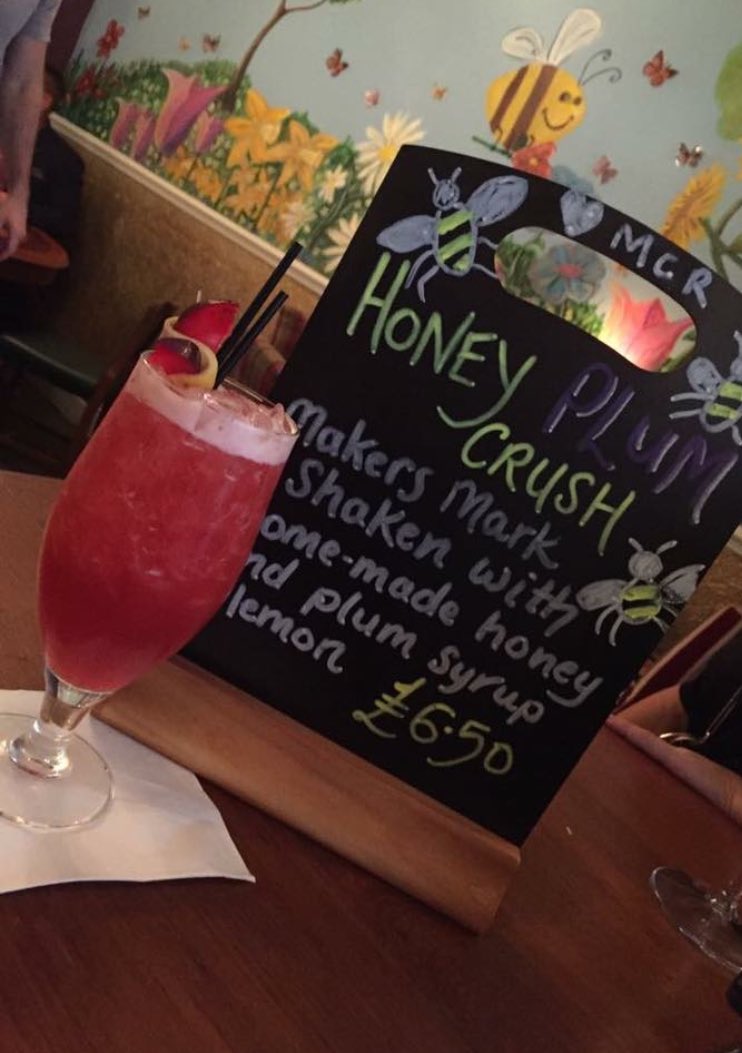 ♥ MCR
HONEY PLUM
CRUSH
Makers Mark
Shaken with
ome-made honey
nd plum syrup
lemon
£6.50